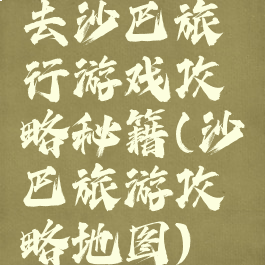 去沙巴旅
行游戏攻
略秘籍(沙
巴旅游攻
略地图)